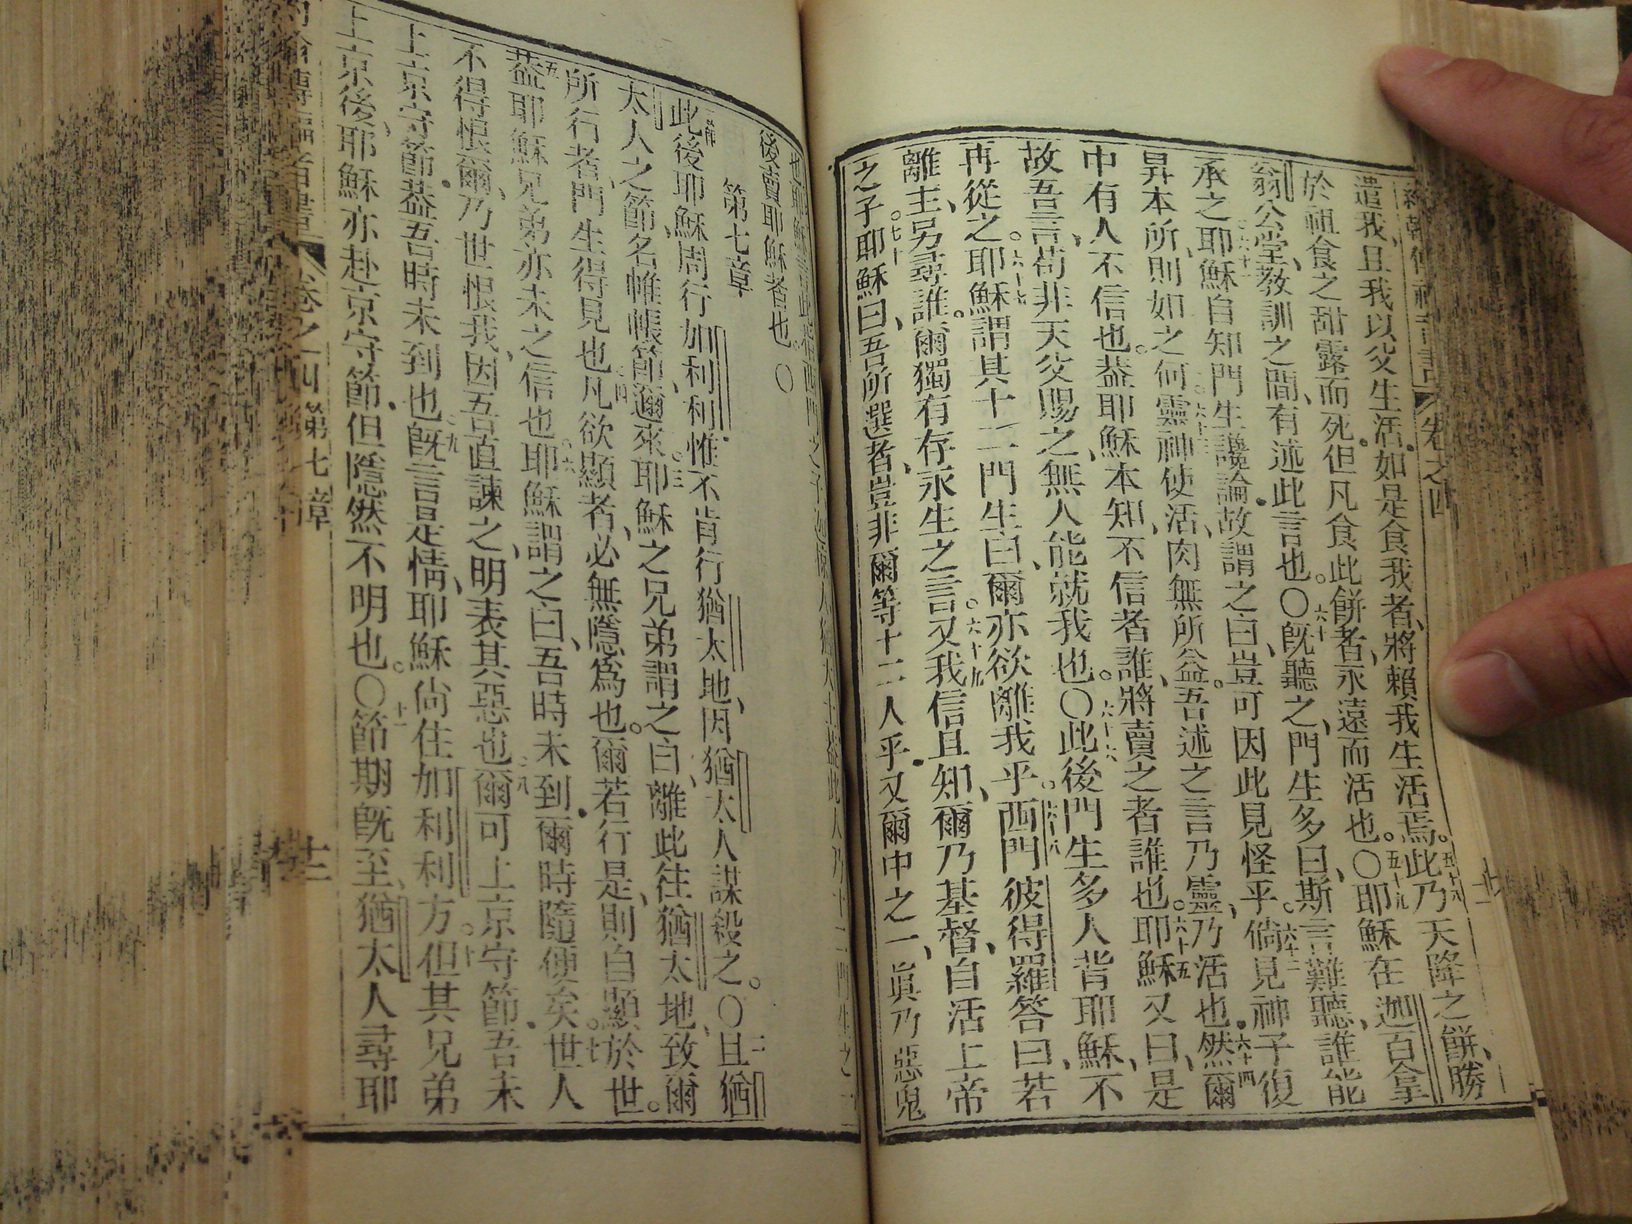 卷之四
遣我、且我以父生活、如是食我者、將賴我生活焉。五十八此乃天降之餅、勝
於祖食之甜露而死、但凡食此餅者、永遠而活也。五十九〇耶穌在迦百拿
翁公堂、教訓之間、有述此言也。六十〇旣聽之、門生多曰、斯言難聽、誰能
承之、六十一耶穌自知門生譏論、故謂之曰、豈可因此見怪乎。六十二倘見神子復
昇本所、則如之何、六十三靈神使活、肉無所益。吾述之言、乃靈、乃活也。六十四然爾
中有人不信也。蓋耶穌本知、不信者誰、將賣之者誰也。六十五耶穌又曰、是
故吾言、苟非天父賜之、無人能就我也。六十六〇此後門生多人背耶穌、不
再從之。六十七耶穌謂其十二門生曰、爾亦欲離我乎。六十八西門彼得羅答曰、若
離主、另尋誰。爾獨有存永生之言。六十九又我信且知、爾乃基督、自活上帝
之子。七十耶穌曰、吾所選者、豈非爾等十二人乎、又爾中之一、眞乃惡鬼
後賣耶穌者也。〇
第七章
此後耶穌周行加利利、惟不肯行猶太地、因猶太人謀殺之。〇二且猶
太人之節、名帷帳節、邇來、三耶穌之兄弟謂之曰、離此往猶太地、致爾
所行者、門生得見也、四凡欲顯者、必無隱爲也。爾若行是、則自顯於世。
五蓋耶穌兄弟、亦未之信也。六耶穌謂之曰、吾時未到、爾時隨便矣。七世人
不得恨爾、乃世恨我、因吾直諫之、明表其惡也、八爾可上京守節、吾未
上京守節、蓋吾時未到也、九旣言是情、耶穌尙住加利利方。十但其兄弟
上京後、耶穌亦赴京守節、但隱然不明也。十一〇節期旣至、猶太人尋耶
卷之四 第七章